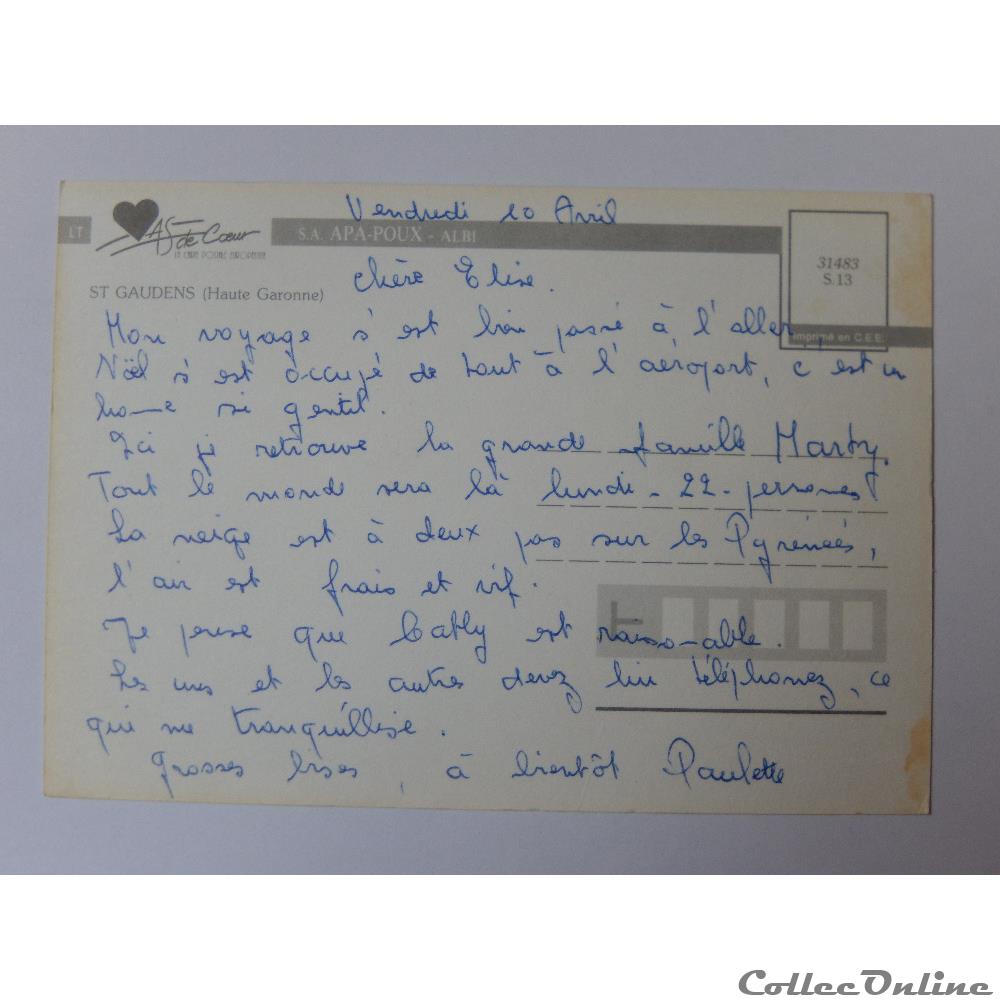 Vendredi 10 Avril
LT
As de Cœur
LA CARTE POSTALE EUROPEENNE
S.A. APA-POUX - ALBI
31483
S.13
Imprimé en C.E.E.
ST GAUDENS (Haute Garonne)
Chère Elise.
Mon voyage s'est bien passé à l'aller,
Noël s'est occupé de tout à l'aéroport, c'est un
homme si gentil.
Ici je retrouve la grande famille Marty.
Tout le monde sera là lundi - 22 - personnes
La neige est à deux pas sur les Pyrénées,
l'air est frais et vif.
Je pense que Cathy est raisonnable.
Les unes et les autres devez lui téléphonez, ce
qui me tranquillise.
Grosses bises, à bientôt Paulette
CollecOnline